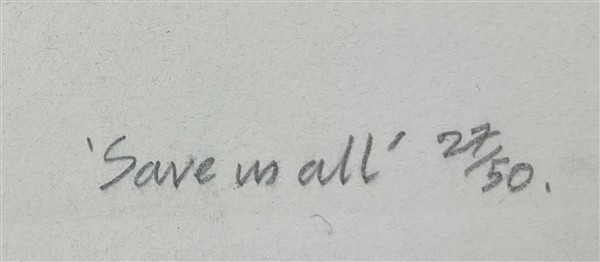 'Save us all' 27/50.